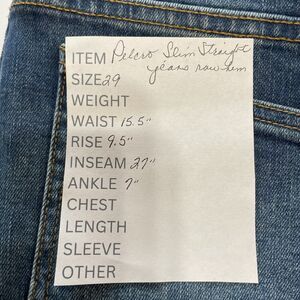 ITEM Pilcro Slim Straight
jeans raw hem
SIZE 29
WEIGHT
WAIST 15.5"
RISE 9.5"
INSEAM 27"
ANKLE 7"
CHEST
LENGTH
SLEEVE
OTHER